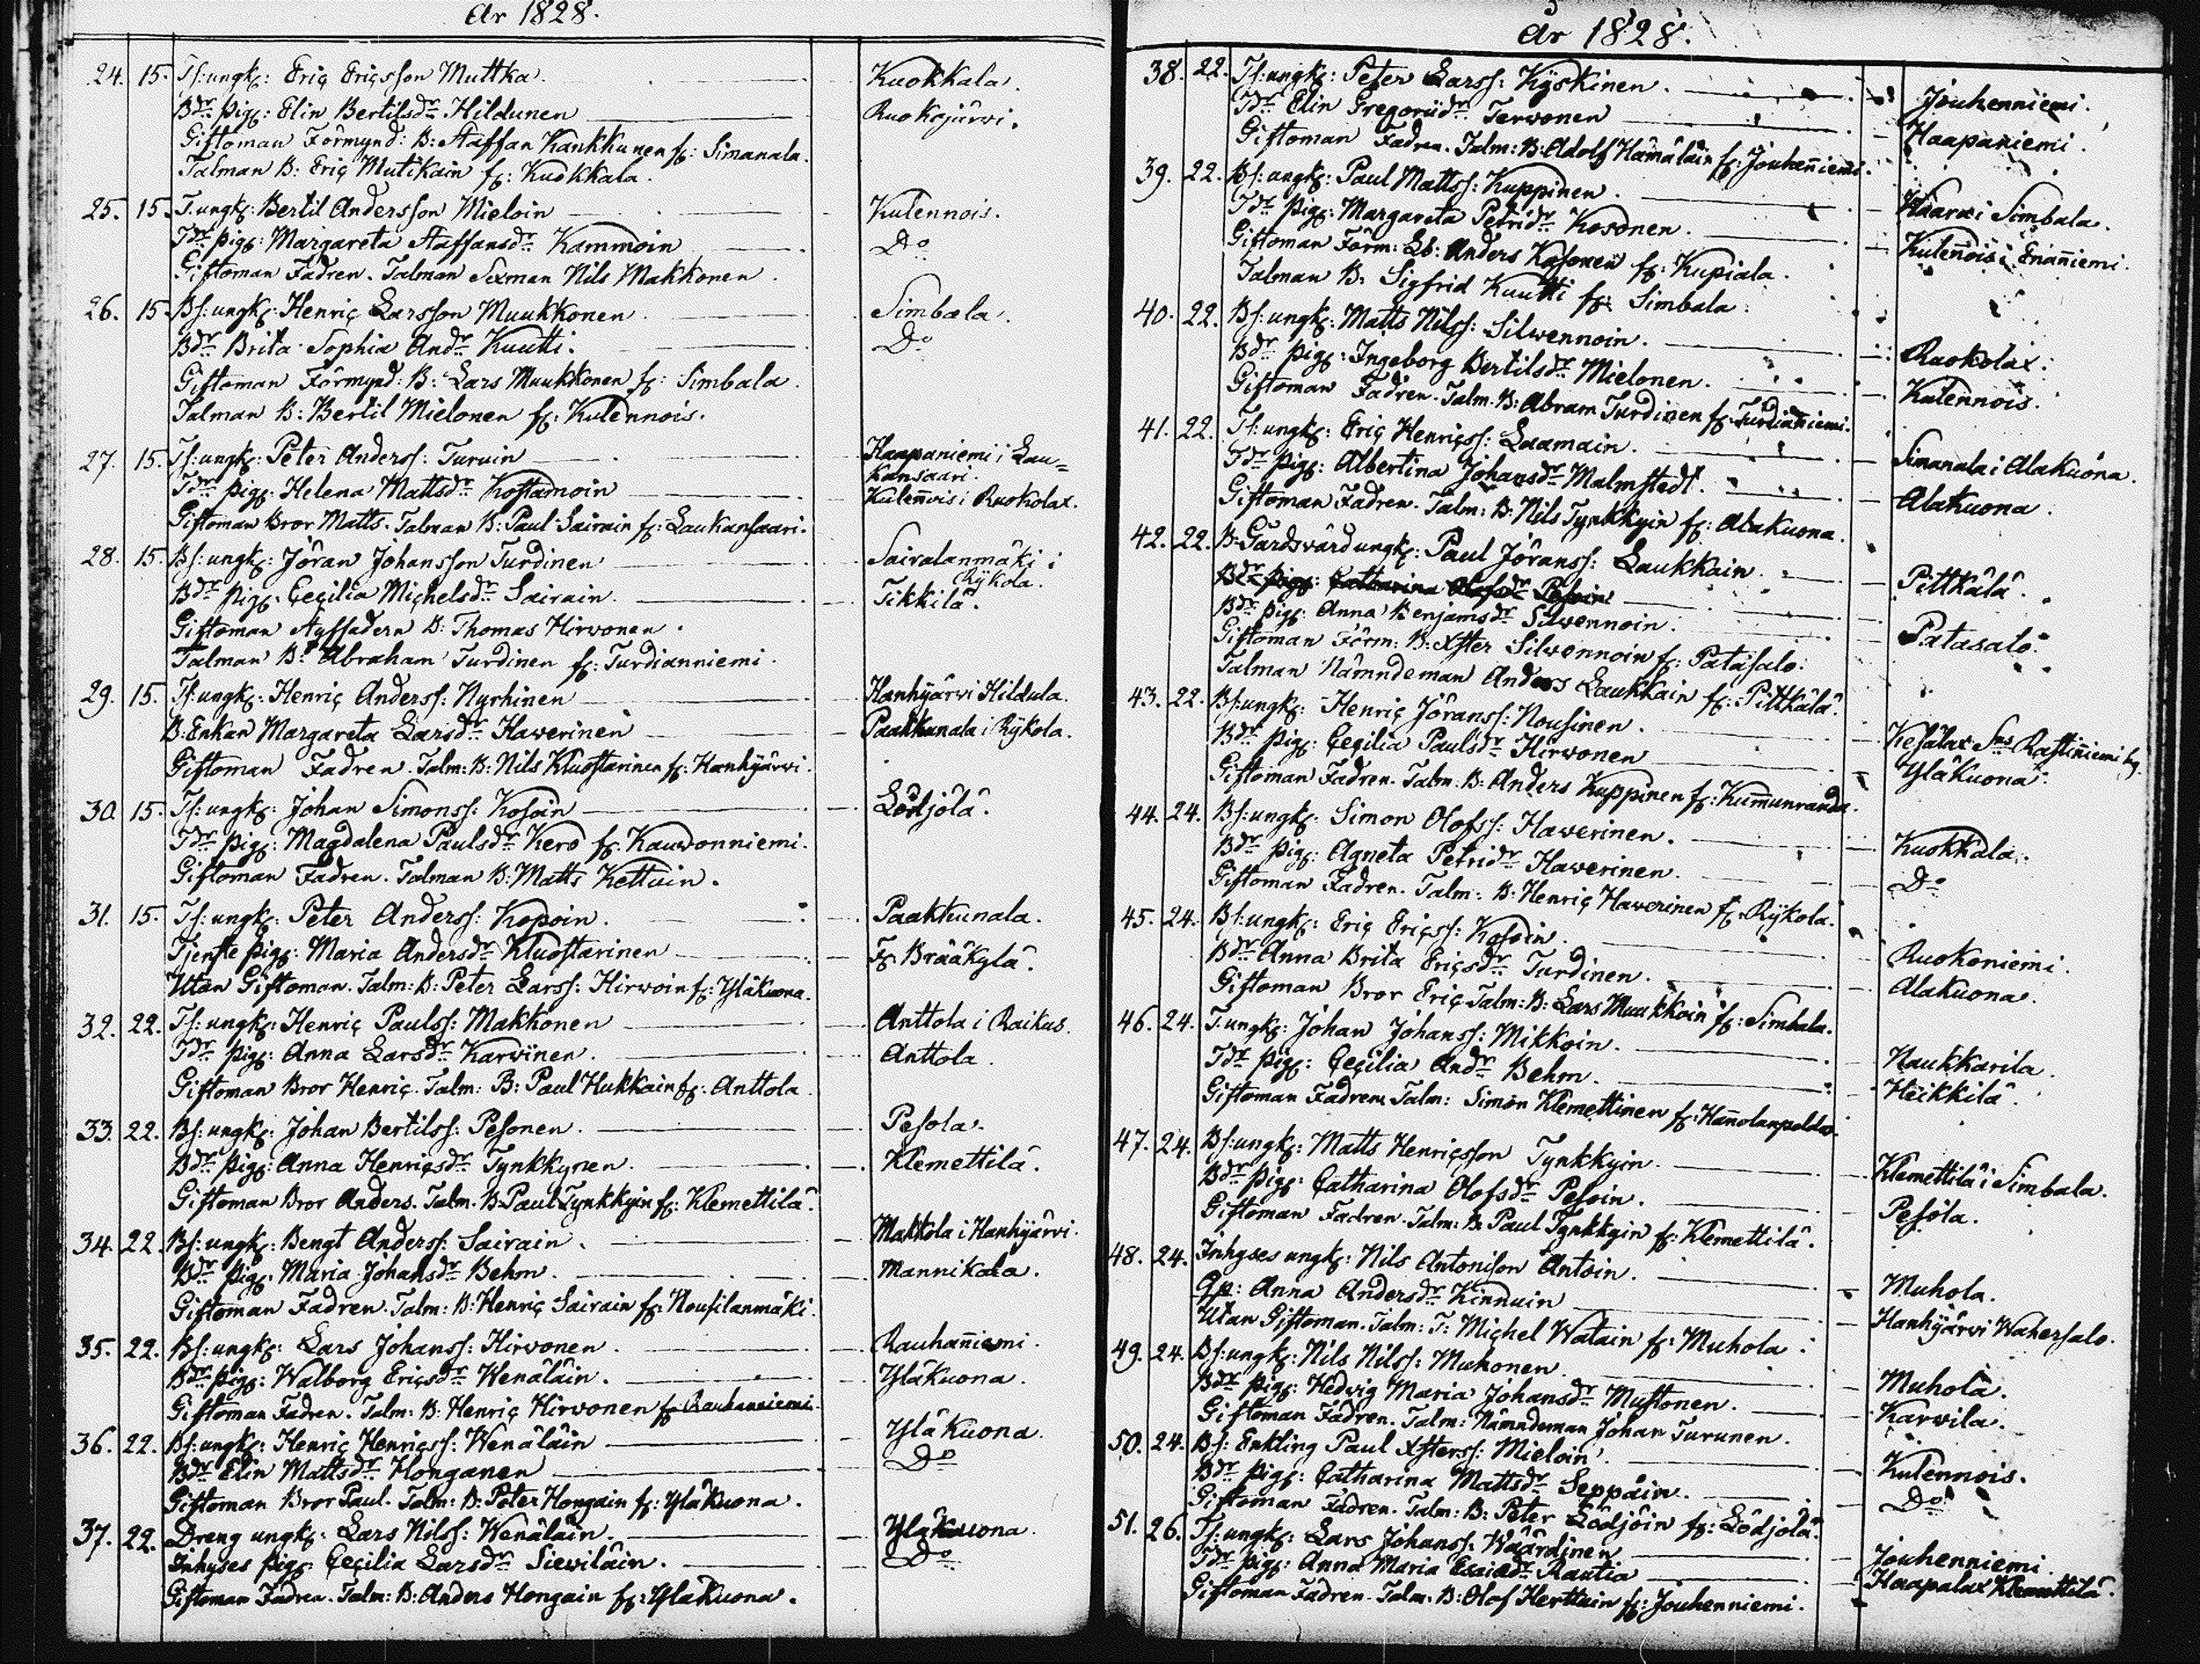 År 1828.
24. 15. Ts: ungk: Eric Ericsson Muttka. Kuokkala.
Bdr pig: Elin Bertilsdr Hildunen Ruokojärwi.
Giftoman Förmynd: B: Staffan Kankkunen fr: Simanala.
Talman B: Eric Mutikain fr: Kuokkala.
25. 15. T. ungk: Bertil Andersson Mieloin Kulennois.
Tdr pig: Margareta Staffansdr Kammoin Do
Giftoman Fadren. Talman Sexman Nils Makkonen.
26. 15. Bs: ungk: Henric Larsson Muukkonen. Simbala.
Bdr Brita Sophia Andr Kuutti. Do
Giftoman Förmynd: B: Lars Muukkonen fr: Simbala.
Talman B: Bertil Mielonen fr: Kulennois.
27. 15. Ts: ungk: Peter Anderss: Turuin Haapaniemi i Lau=
kansaari.
Tdr pig: Helena Mattsdr Kostamoin Kulennois i Ruokolax.
Giftoman Bror Matts. Talman B: Paul Sairain fr: Laukansaari.
28. 15. Bs: ungk: Jöran Johansson Turdinen Sairalanmäki i
Rykola.
Bdr pig: Cecilia Michelsdr Sairain. Tikkilä.
Giftoman Styffadern B: Thomas Hirwonen.
Talman B: Abraham Turdinen fr: Turdianniemi.
29. 15. Ts: ungk: Henric Anderss: Nyrhinen Hanhijärwi Hildula.
B: Enkan Margareta Larsdr Hawerinen Paakkunala i Rykola.
Giftoman Fadren. Talm: B: Nils Kluostarinen fr: Hanhijärwi.
30. 15. Ts: ungk: Johan Simonss: Kosoin Lödjölä.
Tdr pig: Magdalena Paulsdr Kero fr: Kauwonniemi.
Giftoman Fadren. Talman B: Matts Kettuin.
31. 15. Ts: ungk: Peter Anderss: Kopoin. Paakkunala.
Tjenste pig: Maria Andersdr Kluostarinen Fr. Brääkylä.
Utan Giftoman. Talm: B: Peter Larss: Hirwoin fr: Yläkuona.
32. 22. Ts: ungk: Henric Paulss: Makkonen Anttola i Raikus.
Tdr pig: Anna Larsdr Karwinen. Anttola.
Giftoman Bror Henric. Talm: B: Paul Hukkain fr: Anttola.
33. 22. Bs: ungk: Johan Bertilss: Pesonen. Pesola.
Bdr pig: Anna Henricsdr Tynkkynen. Klemettilä.
Giftoman Bror Anders. Talm. B: Paul Tynkkyin fr: Klemettilä.
34. 22. Bs: ungk: Bengt Anderss: Sairain. Makkola i Hanhijärwi.
Bdr pig: Maria Johansdr Behm. Mannikala.
Giftoman Fadren. Talm: B: Henric Sairain fr: Nousilanmäki.
35. 22. Bs: ungk: Lars Johanss: Hirwonen. Rauhaniemi.
Bdr pig: Walborg Ericsdr Wenäläin. Yläkuona.
Giftoman Fadren. Talm: B: Henric Hirwonen fr Rauhanniemi.
36. 22. Bs: ungk: Henric Henricss: Wenäläin Yläkuona.
Bdr Elin Mattsdr Honganen Do
Giftoman Bror Paul. Talm: B: Peter Hongain fr: Yläkuona.
37. 22. Dreng ungk: Lars Nilss: Wenäläin. Yläkuona.
Inhyses pig: Cecilia Larsdr Siewiläin. Do
Giftoman Fadren. Talm: B: Anders Hongain fr: Yläkuona.
År 1828.
38. 22. Ts: ungk: Peter Larss: Kyskinen. Jouhenniemi.
Tdr Elin Gregoriidr Terwonen Haapaniemi.
Giftoman Fadren. Talm: B: Adolf Hämäläin fr: Jouhenniemi.
39. 22. Bs: ungk: Paul Mattss: Kuppinen. Waara i Simbala.
Tdr pig: Margareta Petridr Kosonen. Kulennois i Enanniemi.
Giftoman Förm: Lb: Anders Kosonen fr: Kupiala.
Talman B: Sigfrid Kuutti fr: Simbala.
40. 22. Bs: ungk: Matts Nilss: Silwennoin. Ruokolax.
Bdr pig: Ingeborg Bertilsdr Mielonen. Kulennois.
Giftoman Fadren. Talm. B: Abram Turdinen fr: Turdianiemi.
41. 22. Ts: ungk: Eric Henricss: Laamain. Simanala i Alakuona.
Tdr pig: Albertina Johansdr Malmstedt. Alakuona.
Giftoman Fadren. Talm: B: Nils Tynkkyin fr: Alakuona.
42. 22. B: Gårdsvärd ungk: Paul Jöranss: Laukkain. Pittkälä.
Bdr pig: Catharina Olofsdr Pesoin
Bdr pig: Anna Benjamsdr Silwennoin. Patasalo.
Giftoman Förm: B: Xster Silwennoin fr: Patasalo.
Talman Nämndeman Anders Laukkain fr: Pittkälä.
43. 22. Bs: ungk: Henric Jöranss: Nousinen. Kesälax Sns Rastiniemi by.
Bdr pig: Cecilia Paulsdr Hirwonen Yläkuona.
Giftoman Fadren. Talm. B: Anders Kuppinen fr: Kummunranda.
44. 24. Bs: ungk: Simon Olofss: Hawerinen. Kuokkala.
Bdr pig: Agneta Petridr Hawerinen. Do
Giftoman Fadren. Talm: B: Henric Hawerinen fr: Rykola.
45. 24. Bs: ungk: Eric Ericss: Kosoin. Ruokoniemi.
Bdr Anna Brita Ericsdr Turdinen. Alakuona.
Giftoman Bror Eric. Talm: B: Lars Muukkoin fr: Simbala.
46. 24. T. ungk: Johan Johanss: Mikkoin. Naukkarila.
Tdr pig: Cecilia Andr Behm. Heikkilä.
Giftoman Fadren. Talm: Simon Klemettinen fr: Hannolanpelda.
47. 24. Bs: ungk: Matts Henricsson Tynkkyin. Klemettilä i Simbala.
Bdr pig: Catharina Olofsdr Pesoin. Pesola.
Giftoman Fadren. Talm: B: Paul Tynkkyin fr: Klemettilä.
48. 24. Inhyses ungk: Nils Antonison Antoin. Muhola.
Qp: Anna Andersdr Kinnuin Hanhijärwi Wahersalo.
Utan Giftoman. Talm: T: Michel Watain fr: Muhola.
49. 24. Bs: ungk: Nils Nilss: Muhonen. Muhola.
Bdr pig: Hedwig Maria Johansdr Mustonen. Karwila.
Giftoman Fadren. Talm: Nämndeman Johan Turunen.
50. 24. Bs: Enkling Paul Xsterss: Mieloin. Kulennois.
Bdr pig: Catharina Mattsdr Seppäin. Do
Giftoman Fadren. Talm: B: Peter Lödjöin fr: Lödjölä.
51. 26. Ts: ungk: Lars Johanss: Wäärdinen Jouhenniemi.
Tdr pig: Anna Maria Esaiædr Rautia Haapalax Klemettilä.
Giftoman Fadren. Talm: B: Olof Herttuin fr: Jouhenniemi.